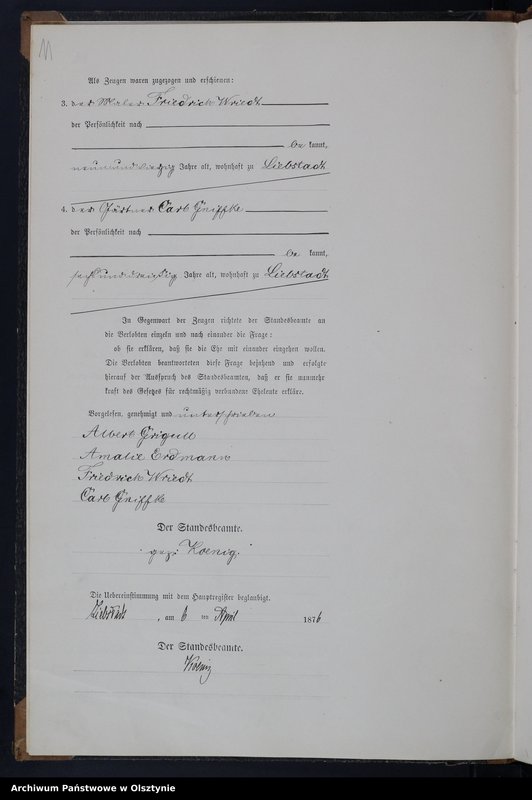 Als Zeugen waren zugezogen und erschienen:
3. der Maler Friedrich Wriedt
der Persönlichkeit nach
be kannt,
neunundvierzig Jahre alt, wohnhaft zu Liebstadt
4. der Gärtner Carl Gniffke
der Persönlichkeit nach
be kannt,
Jahre alt, wohnhaft zu Liebstadt
In Gegenwart der Zeugen richtete der Standesbeamte an
die Verlobten einzeln und nach einander die Frage:
ob sie erklären, daß sie die Ehe mit einander eingehen wollen.
Die Verlobten beantworteten diese Frage bejahend und erfolgte
hierauf der Ausspruch des Standesbeamten, daß er sie nunmehr
kraft des Gesetzes für rechtmäßig verbundene Eheleute erkläre.
Vorgelesen, genehmigt und unterschrieben
Albert Grigull
Amalie Erdmann
Friedrich Wriedt
Carl Gniffke
Der Standesbeamte.
gez: Koenig.
Die Uebereinstimmung mit dem Hauptregister beglaubigt.
Liebstadt, am 6 ten April 1876
Der Standesbeamte.
Koenig
Archiwum Państwowe w Olsztynie